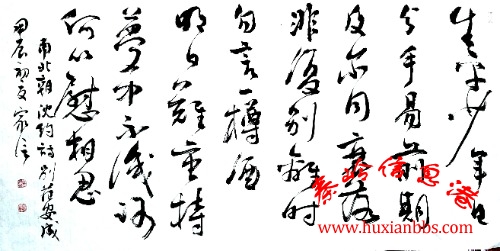 生平少年日
分手易前期
及尔同衰暮
非復别離時
勿言一樽酒
明日難重持
夢中不識路
何以慰相思
南北朝沈約詩别范安成
甲辰初夏
www.huxianbbs.com